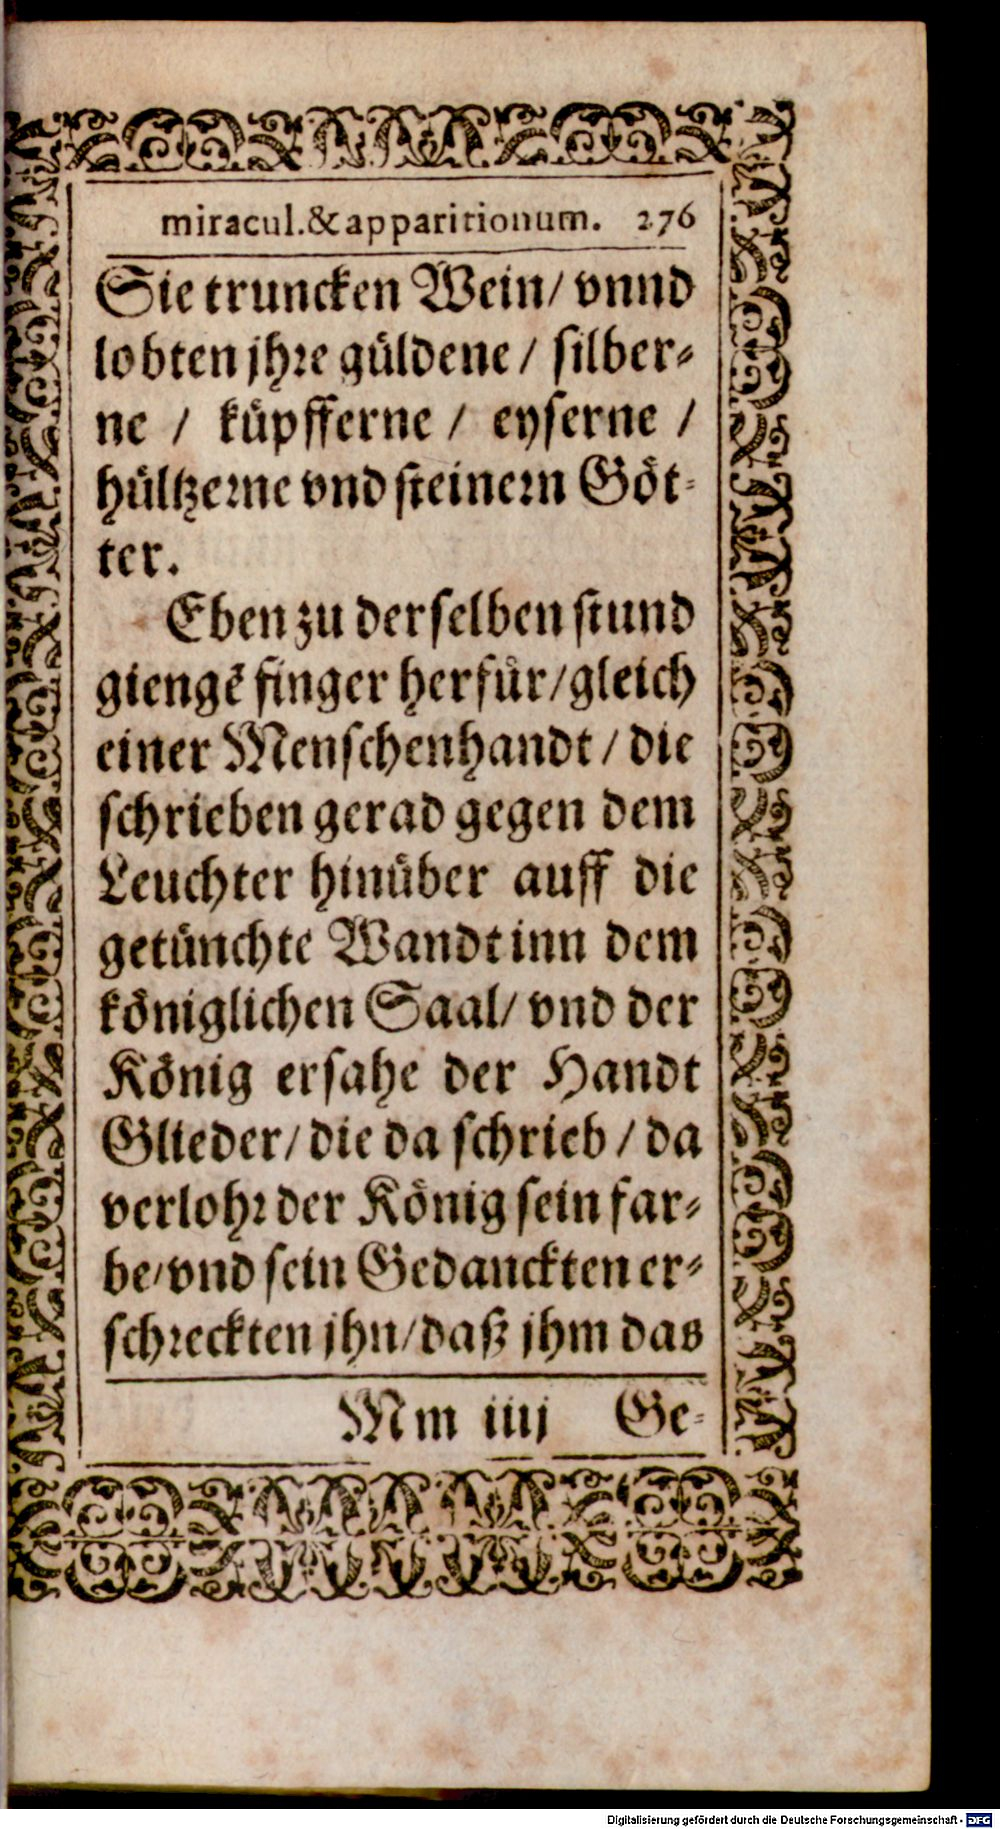 miracul.&apparitionum. 276
Sie truncken Wein/ vnnd
lobten jhre güldene / silber-
ne / küpfferne / eyserne /
hültzerne vnd steinern Göt-
ter.
Eben zu derselben stund
giengē finger herfür/gleich
einer Menschenhandt / die
schrieben gerad gegen dem
Leuchter hinüber auff die
getünchte Wandt inn dem
königlichen Saal/ vnd der
König ersahe der Handt
Glieder/ die da schrieb / da
verlohr der König sein far-
be/ vnd sein Gedanckten er-
schreckten jhn/ daß jhm das
Mm iiij Ge-
Digitalisierung gefördert durch die Deutsche Forschungsgemeinschaft - DFG